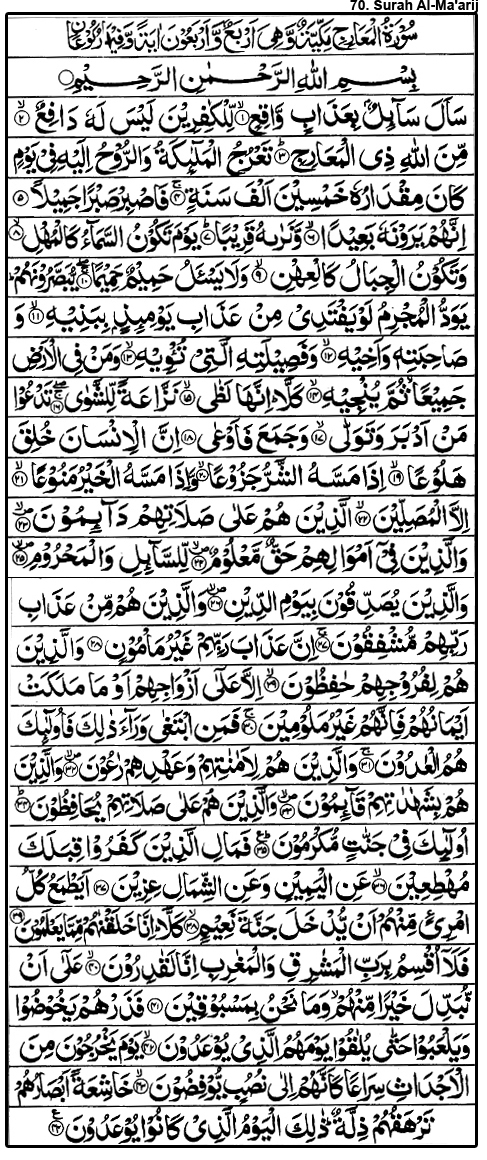 70. Surah Al-Ma'arij
سُوْرَةُ الْمَعَارِجِ مَكِّيَّةٌ وَّهِيَ اَرْبَعٌ وَّاَرْبَعُوْنَ اٰيَةً وَّفِيْهَا رُكُوْعَانِ
بِسْمِ اللّٰهِ الرَّحْمٰنِ الرَّحِيْمِ
سَاَلَ سَآىِٕلٌۢ بِعَذَابٍ وَّاقِعٍ ۙ۝۱ لِّلْكٰفِرِيْنَ لَيْسَ لَهٗ دَافِعٌ ۙ۝۲
مِّنَ اللّٰهِ ذِي الْمَعَارِجِ ؕ۝۳ تَعْرُجُ الْمَلٰٓىِٕكَةُ وَالرُّوْحُ اِلَيْهِ فِيْ يَوْمٍ
كَانَ مِقْدَارُهٗ خَمْسِيْنَ اَلْفَ سَنَةٍ ۚ۝۴ فَاصْبِرْ صَبْرًا جَمِيْلًا ۝۵
اِنَّهُمْ يَرَوْنَهٗ بَعِيْدًا ۙ۝۶ وَّنَرٰىهُ قَرِيْبًا ؕ۝۷ يَوْمَ تَكُوْنُ السَّمَآءُ كَالْمُهْلِ ۙ۝۸
وَتَكُوْنُ الْجِبَالُ كَالْعِهْنِ ۙ۝۹ وَلَا يَسْـَٔلُ حَمِيْمٌ حَمِيْمًا ۚۖ۝۱۰ يُّبَصَّرُوْنَهُمْ ؕ
يَوَدُّ الْمُجْرِمُ لَوْ يَفْتَدِيْ مِنْ عَذَابِ يَوْمِىِٕذٍۭ بِبَنِيْهِ ۙ۝۱۱ وَ
صَاحِبَتِهٖ وَاَخِيْهِ ۙ۝۱۲ وَفَصِيْلَتِهِ الَّتِيْ تُـْٔوِيْهِ ۙ۝۱۳ وَمَنْ فِي الْاَرْضِ
جَمِيْعًا ۙ ثُمَّ يُنْجِيْهِ ۙ۝۱۴ كَلَّا ؕ اِنَّهَا لَظٰى ۙ۝۱۵ نَزَّاعَةً لِّلشَّوٰى ۚۖ۝۱۶ تَدْعُوْا
مَنْ اَدْبَرَ وَتَوَلّٰى ۙ۝۱۷ وَجَمَعَ فَاَوْعٰى ۝۱۸ اِنَّ الْاِنْسَانَ خُلِقَ
هَلُوْعًا ۙ۝۱۹ اِذَا مَسَّهُ الشَّرُّ جَزُوْعًا ۙ۝۲۰ وَّاِذَا مَسَّهُ الْخَيْرُ مَنُوْعًا ۙ۝۲۱
اِلَّا الْمُصَلِّيْنَ ۙ۝۲۲ الَّذِيْنَ هُمْ عَلٰى صَلَاتِهِمْ دَآىِٕمُوْنَ ۪ۙ۝۲۳
وَالَّذِيْنَ فِيْٓ اَمْوَالِهِمْ حَقٌّ مَّعْلُوْمٌ ۪ۙ۝۲۴ لِّلسَّآىِٕلِ وَالْمَحْرُوْمِ ۪ۙ۝۲۵
وَالَّذِيْنَ يُصَدِّقُوْنَ بِيَوْمِ الدِّيْنِ ۪ۙ۝۲۶ وَالَّذِيْنَ هُمْ مِّنْ عَذَابِ
رَبِّهِمْ مُّشْفِقُوْنَ ۚ۝۲۷ اِنَّ عَذَابَ رَبِّهِمْ غَيْرُ مَاْمُوْنٍ ۝۲۸ وَالَّذِيْنَ
هُمْ لِفُرُوْجِهِمْ حٰفِظُوْنَ ۙ۝۲۹ اِلَّا عَلٰٓى اَزْوَاجِهِمْ اَوْ مَا مَلَكَتْ
اَيْمَانُهُمْ فَاِنَّهُمْ غَيْرُ مَلُوْمِيْنَ ۚ۝۳۰ فَمَنِ ابْتَغٰى وَرَآءَ ذٰلِكَ فَاُولٰٓىِٕكَ
هُمُ الْعٰدُوْنَ ۚ۝۳۱ وَالَّذِيْنَ هُمْ لِاَمٰنٰتِهِمْ وَعَهْدِهِمْ رٰعُوْنَ ۪ۙ۝۳۲ وَالَّذِيْنَ
هُمْ بِشَهٰدٰتِهِمْ قَآىِٕمُوْنَ ۪ۙ۝۳۳ وَالَّذِيْنَ هُمْ عَلٰى صَلَاتِهِمْ يُحَافِظُوْنَ ؕ۝۳۴
اُولٰٓىِٕكَ فِيْ جَنّٰتٍ مُّكْرَمُوْنَ ؕ۠۝۳۵ فَمَالِ الَّذِيْنَ كَفَرُوْا قِبَلَكَ
مُهْطِعِيْنَ ۙ۝۳۶ عَنِ الْيَمِيْنِ وَعَنِ الشِّمَالِ عِزِيْنَ ۝۳۷ اَيَطْمَعُ كُلُّ
امْرِئٍ مِّنْهُمْ اَنْ يُّدْخَلَ جَنَّةَ نَعِيْمٍ ۙ۝۳۸ كَلَّا ؕ اِنَّا خَلَقْنٰهُمْ مِّمَّا يَعْلَمُوْنَ ۝۳۹
فَلَآ اُقْسِمُ بِرَبِّ الْمَشٰرِقِ وَالْمَغٰرِبِ اِنَّا لَقٰدِرُوْنَ ۙ۝۴۰ عَلٰٓى اَنْ
نُّبَدِّلَ خَيْرًا مِّنْهُمْ ۙ وَمَا نَحْنُ بِمَسْبُوْقِيْنَ ۝۴۱ فَذَرْهُمْ يَخُوْضُوْا
وَيَلْعَبُوْا حَتّٰى يُلٰقُوْا يَوْمَهُمُ الَّذِيْ يُوْعَدُوْنَ ۙ۝۴۲ يَوْمَ يَخْرُجُوْنَ مِنَ
الْاَجْدَاثِ سِرَاعًا كَاَنَّهُمْ اِلٰى نُصُبٍ يُّوْفِضُوْنَ ۙ۝۴۳ خَاشِعَةً اَبْصَارُهُمْ
تَرْهَقُهُمْ ذِلَّةٌ ؕ ذٰلِكَ الْيَوْمُ الَّذِيْ كَانُوْا يُوْعَدُوْنَ ۠۝۴۴